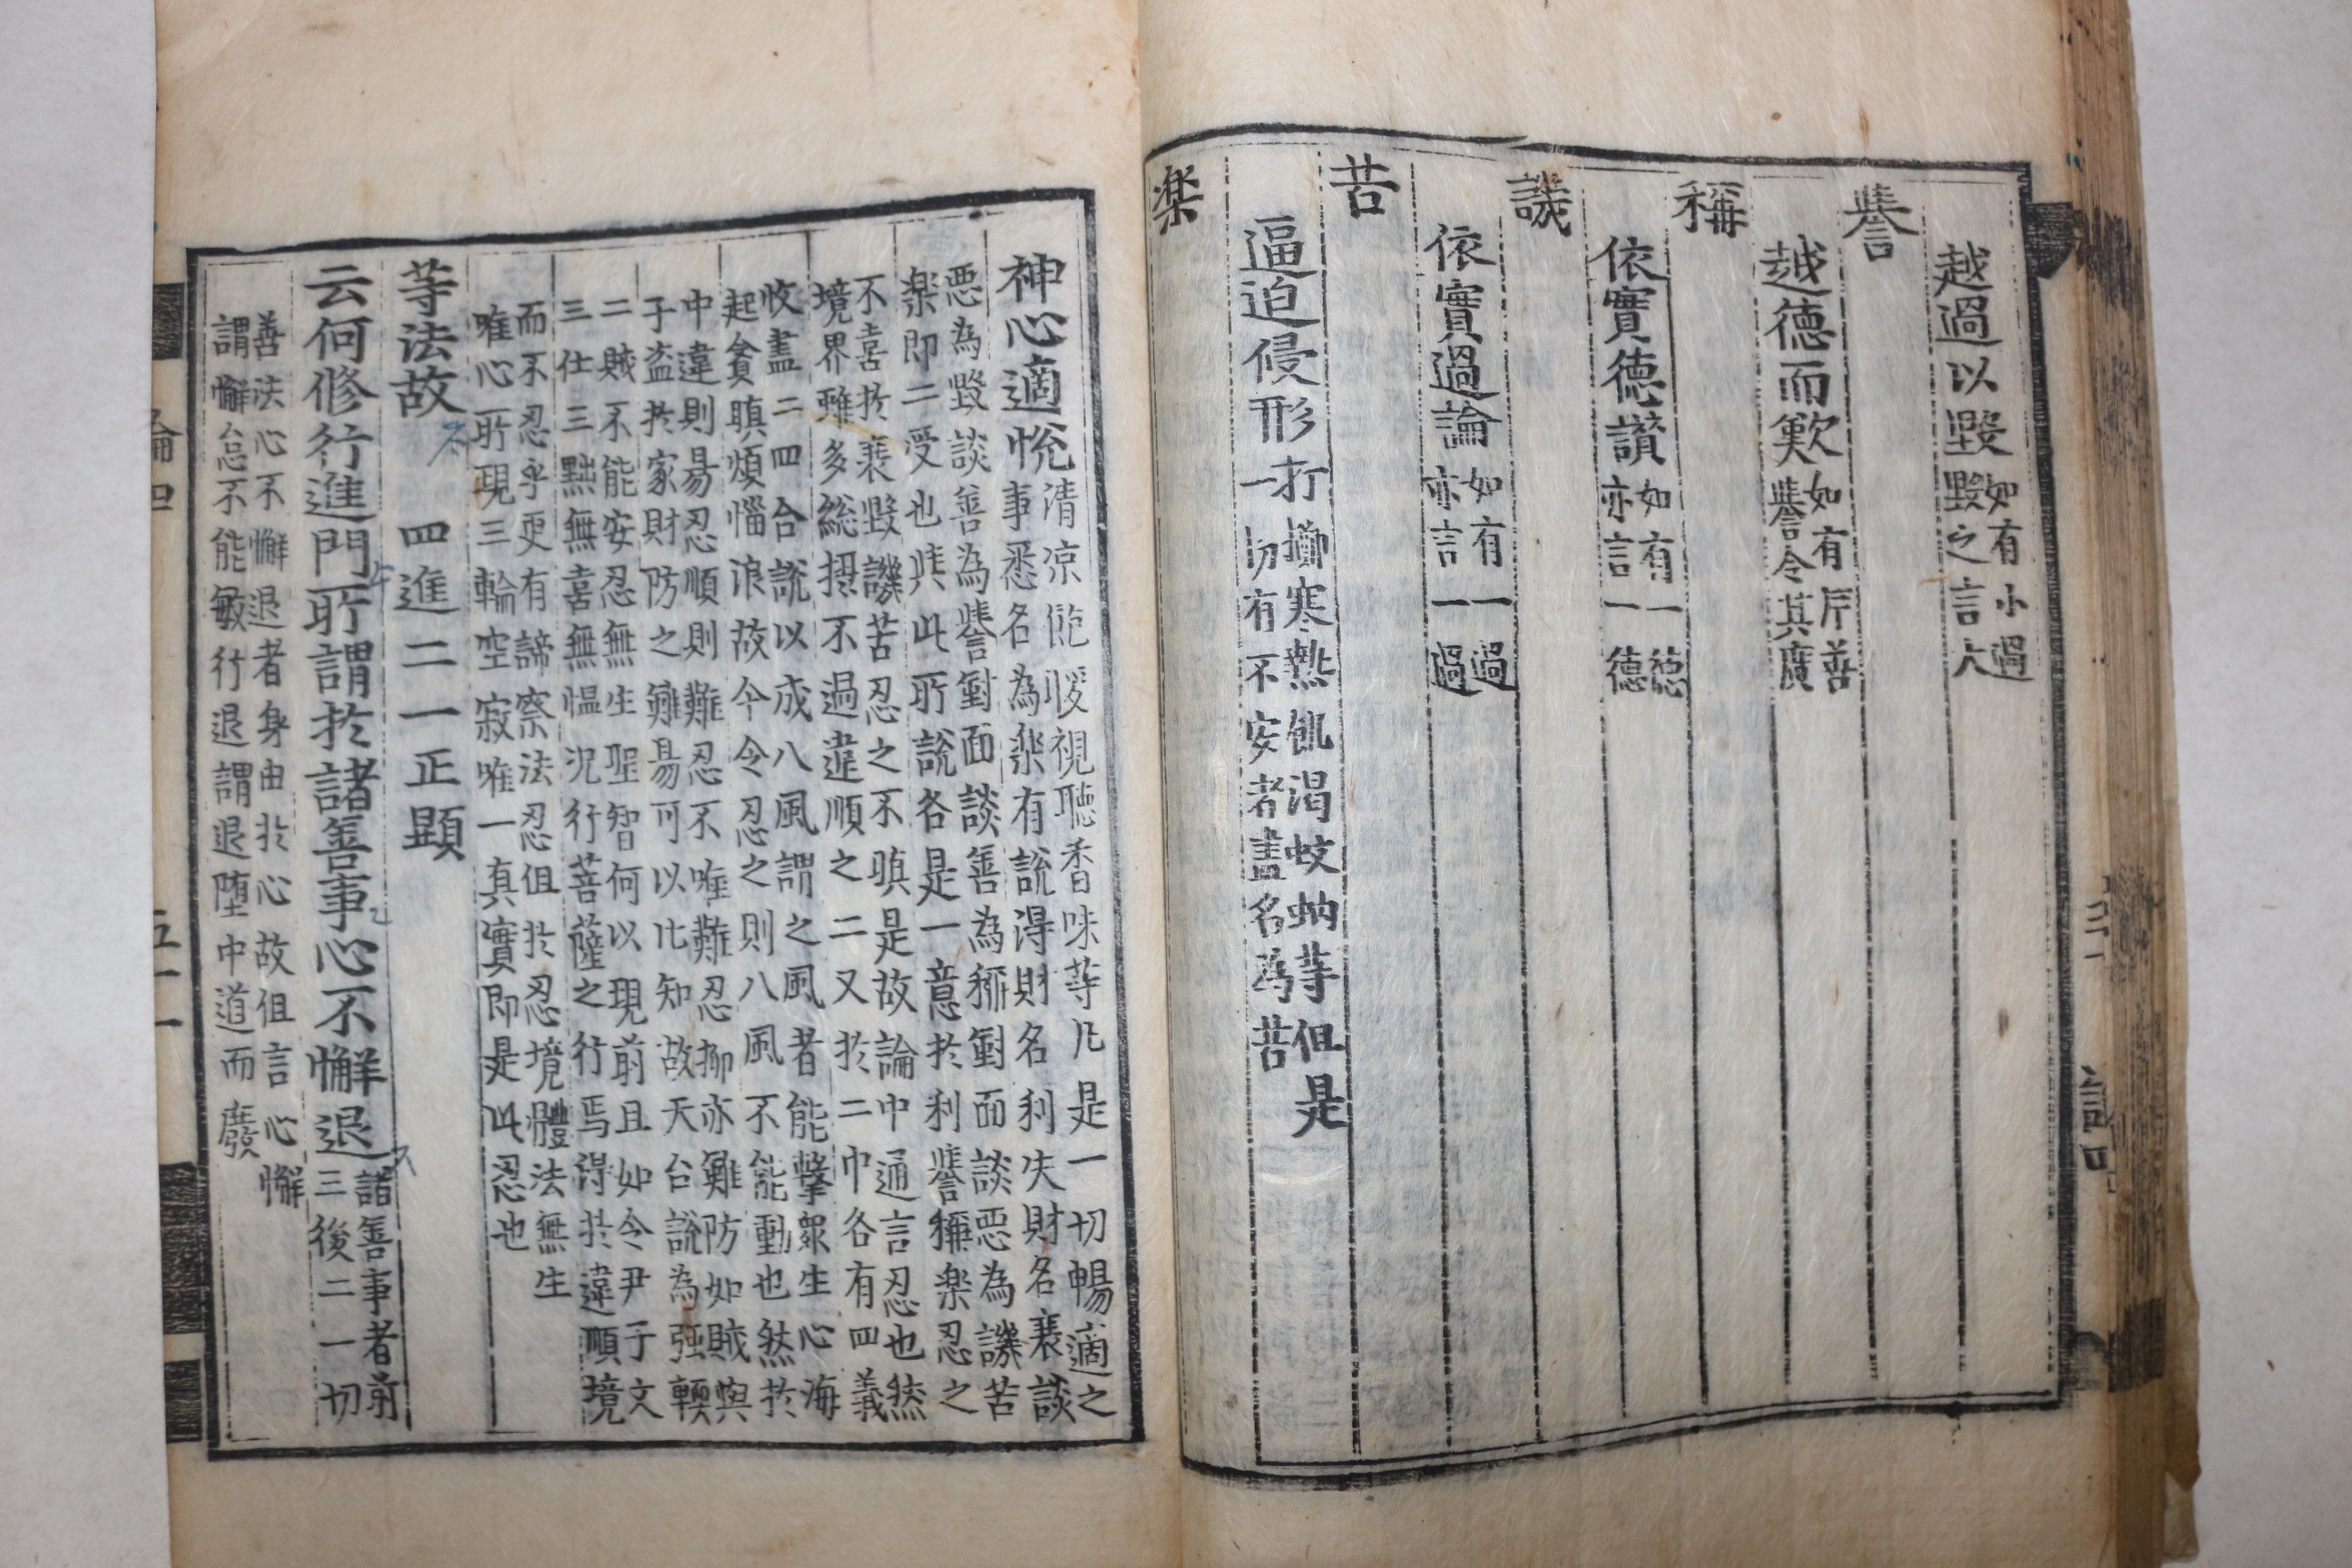 越過以毀如有小過
毀之言大
譽
越德而歎如有片善
譽令其廣
稱
依實德讚如有一德
亦言一德
譏
依實過論如有一過
亦言一過
苦
逼迫侵形打擲寒熱飢渴蚊蚋等但是
一切有不安者盡名為苦
楽
神心適悅清凉飽煖視聴香味等凡是一切暢適之
事悉名為楽有說得財名利失財名衰談
惡為毀談善為譽對面談善為稱對面談惡為譏苦
楽即二受也然此所說各是一意於利譽稱楽忍之
不喜於衰毀譏苦忍之不瞋是故論中通言忍也然
境界雖多総摂不過違順之二又於二中各有四義
收盡二四合說以成八風謂之風者能擊衆生心海
起貪瞋煩惱浪故今令忍之則八風不能動也然於
中違則易忍順則難忍不唯難忍抑亦難防如賊與
子盗於家財防之雖易可以比知故天台說為强輭
二賊不能安忍無生聖智何以現前且如令尹子文
三仕三黜無喜無慍況行菩薩之行焉得於違順境
而不忍乎更有諦察法忍但於忍境體法無生
唯心所現三輪空寂唯一真實即是此忍也
等法故 四進二一正顯
云何修行進門所謂於諸善事心不懈退諸善事者前
三後二一切
善法心不懈退者身由於心故但言心懈
謂懈怠不能敏行退謂退堕中道而廢
論四
五十一